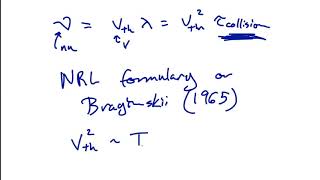 ν = v_th λ = v_th² τ_collision
↑nn ↑v
NRL formulary or
Braginskii (1965)
v_th² ~ T